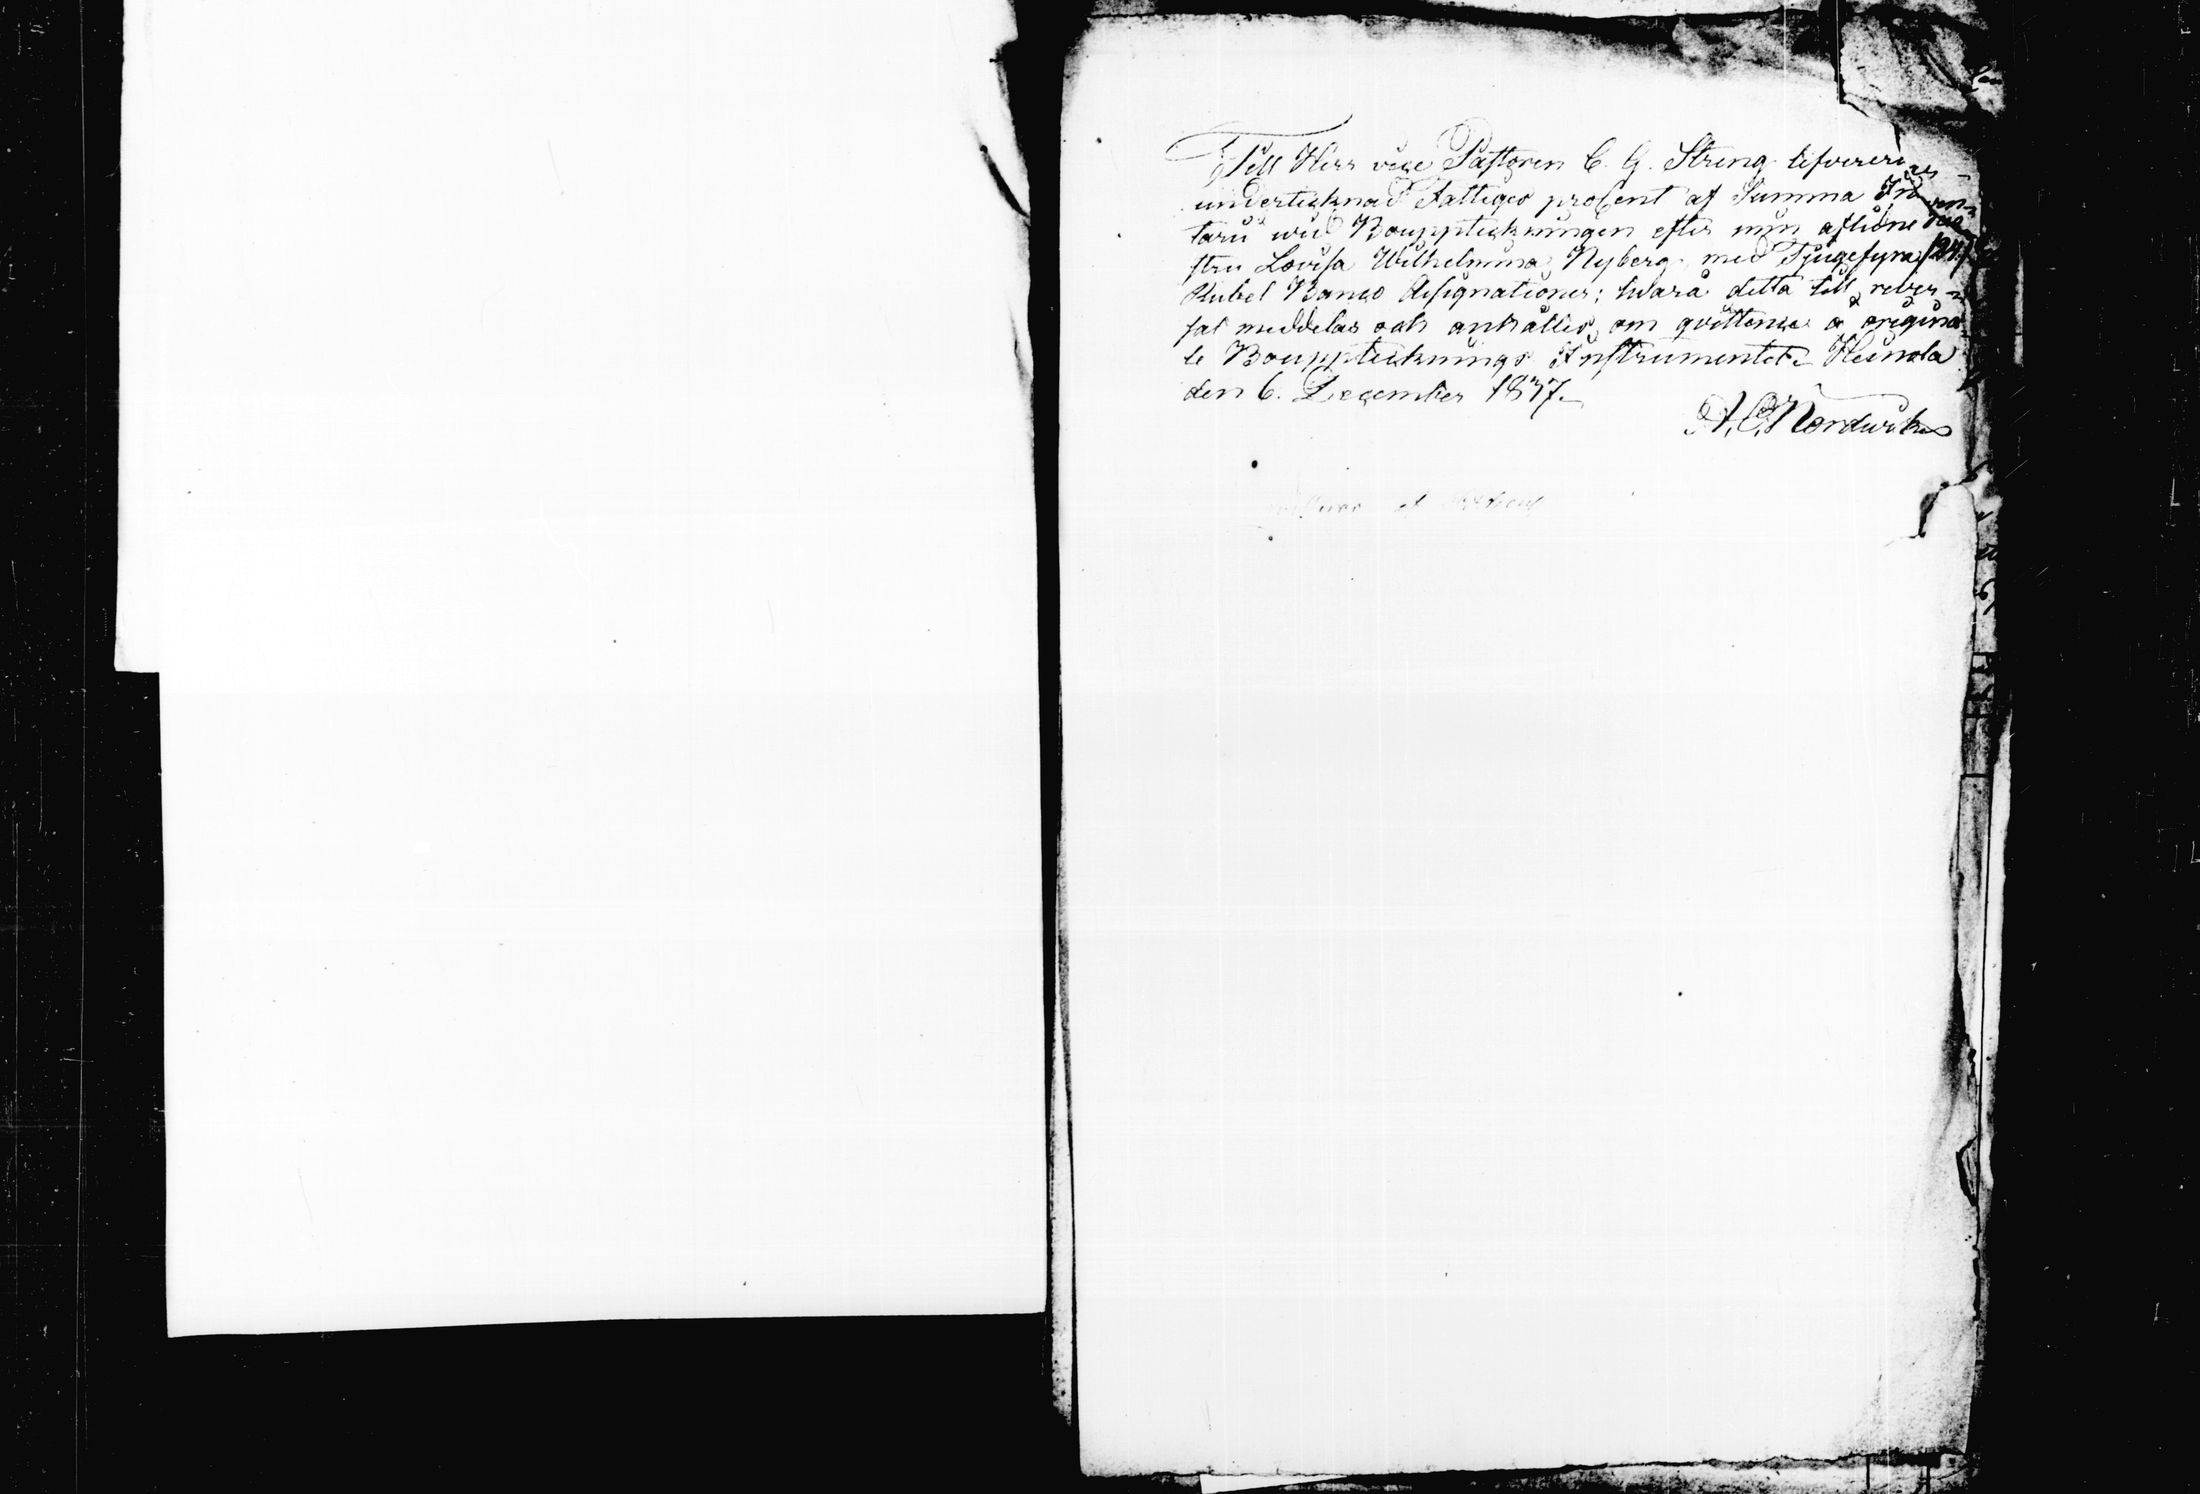 Till Herr vice Pastoren C. G. Streng lefvererer
undertecknad Fattigas procent af Summa Inven-
tarii wid Bouppteckningen efter min aflidne
stru Lovisa Wilhelmina Nyberg med Tjugefyra /24/
Rubel Banco Assignationer; hvarå detta till rever-
sal meddelas och anhålles om qvittence å origina-
le Bouppteckningsinstrumentet. Heinola
den 6. December 1837.
A. C. Nordwik